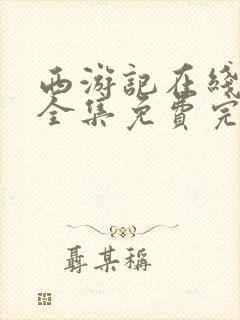 西游記在綫
全集免費完
聶某稱